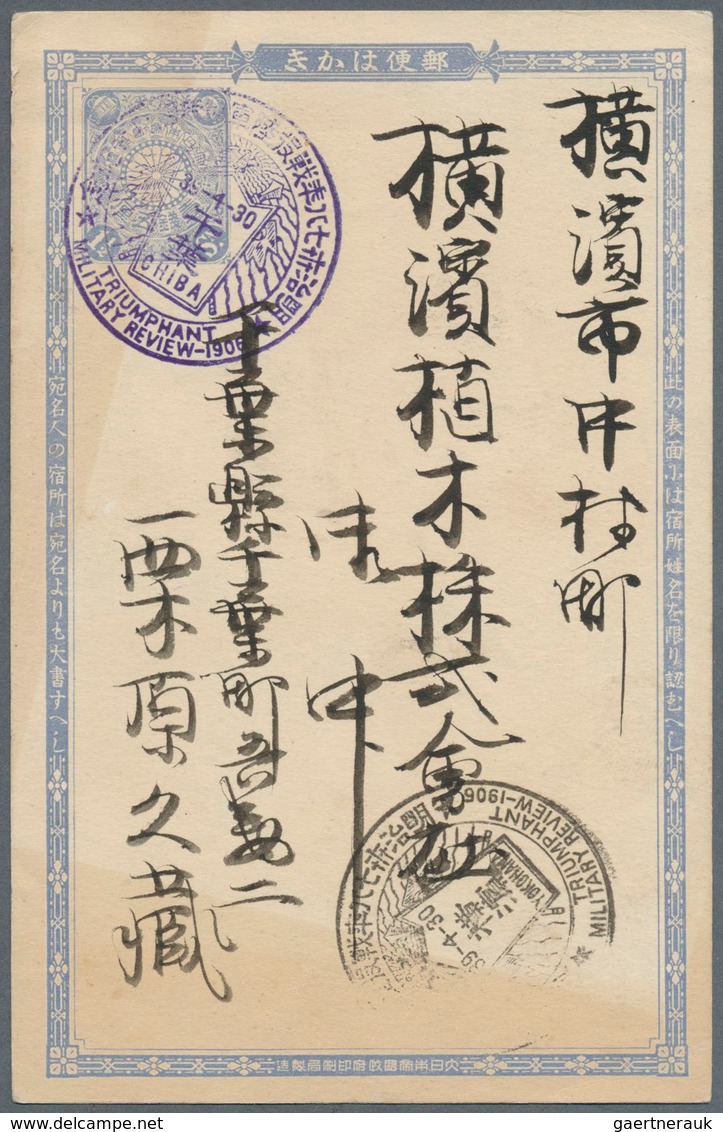 郵便はかき
此の表面には宿所姓名を限り認むへし
横濱市中村町
横濱植木株式會社
御中
千葉縣千葉町
栗原久藏
宛名人の宿所は宛名よりも大書すへし
39-4-30
千葉
CHIBA
TRIUMPHANT
MILITARY REVIEW-1906
明治卅七八年戰役
39-4-30
横濱
YOKOHAMA
TRIUMPHANT
MILITARY REVIEW-1906
明治卅七八年戰役
大日本帝國政府印刷局製造
gaertnerauk